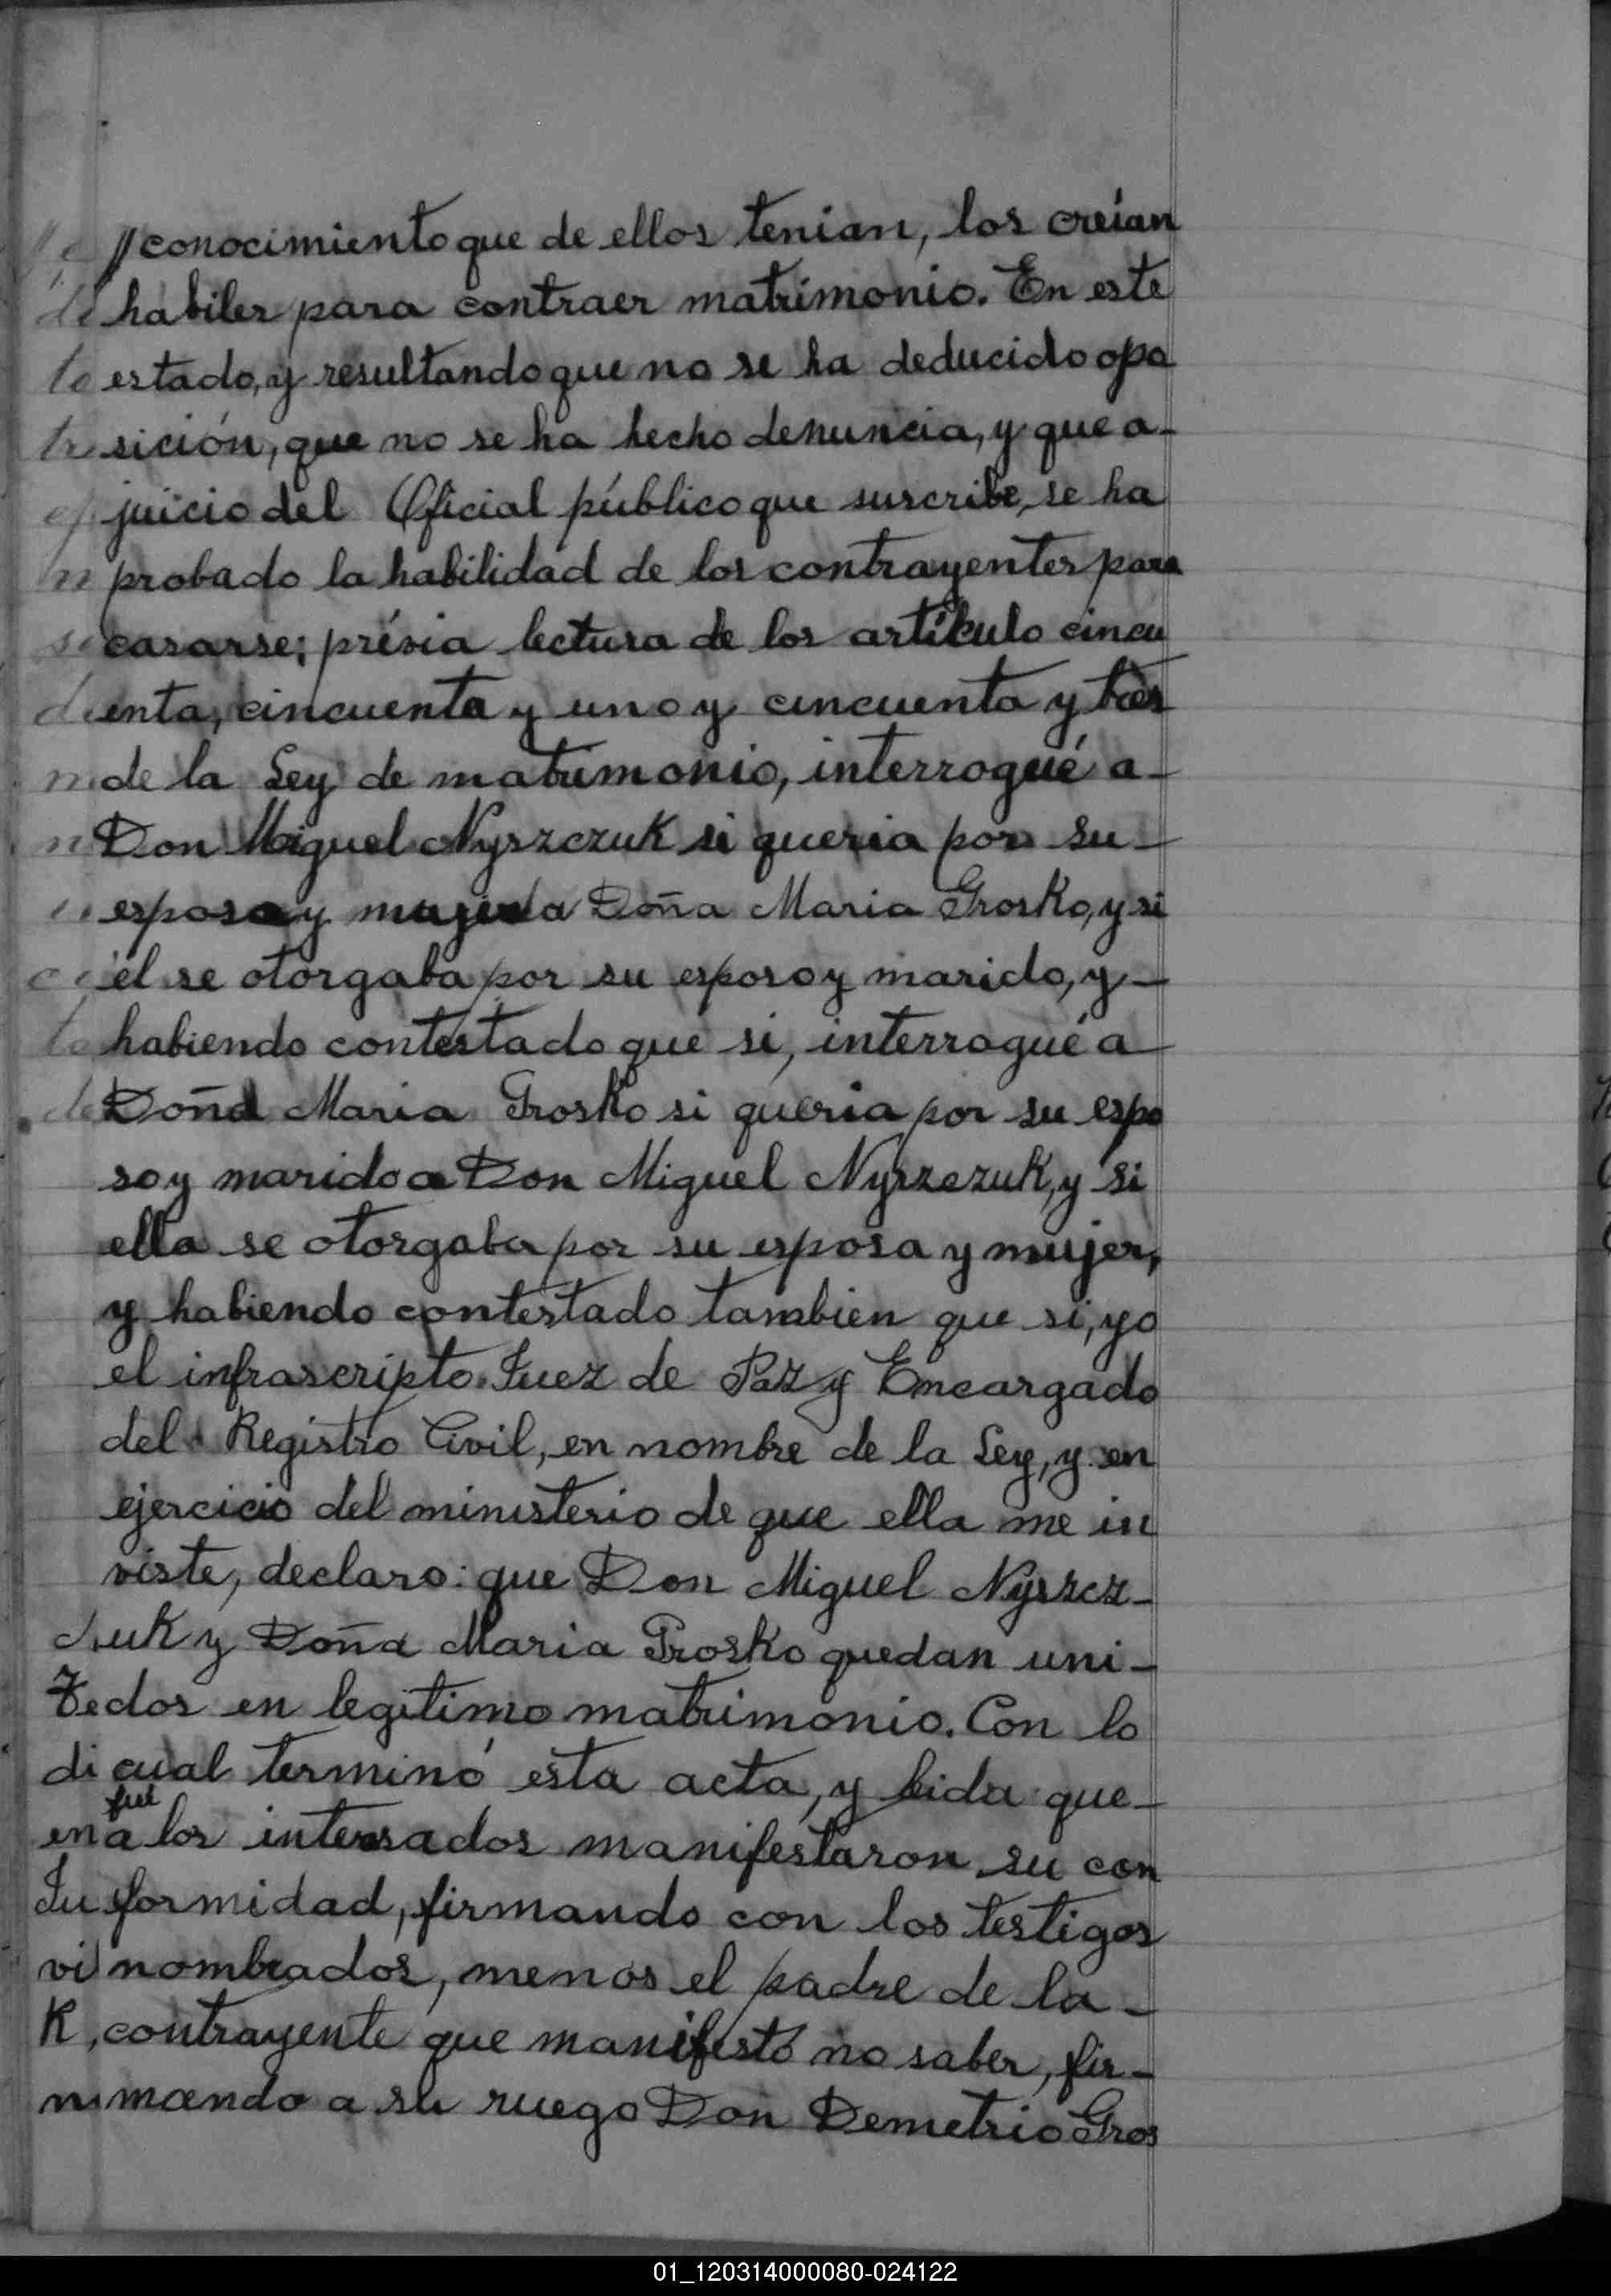 //conocimiento que de ellos tenian, los creían
habiles para contraer matrimonio. En este
estado, y resultando que no se ha deducido opo
sición, que no se ha hecho denuncia, y que a-
juicio del Oficial público que suscribe, se ha
probado la habilidad de los contrayentes para
casarse; prévia lectura de los artículo cincu
enta, cincuenta y uno y cincuenta y tres
de la Ley de matrimonio, interrogué a-
Don Miguel Nyszczuk si queria por su-
esposa y mujer a Doña Maria Grosko, y si
él se otorgaba por su esposo y marido, y-
habiendo contestado que si, interrogué a
Doña Maria Grosko si queria por su espo
so y marido a Don Miguel Nyszczuk, y si
ella se otorgaba por su esposa y mujer,
y habiendo contestado tambien que si, yo
el infrascripto Juez de Paz y Encargado
del Registro Civil, en nombre de la Ley, y en
ejercicio del ministerio de que ella me in
viste, declaro: que Don Miguel Nyszcz-
uk y Doña Maria Grosko quedan uni-
dos en legítimo matrimonio. Con lo
cual terminó esta acta, y leida que
fué
a los interesados manifestaron su con
formidad, firmando con los testigos
nombrados, menos el padre de la-
contrayente que manifestó no saber, fir-
mando a su ruego Don Demetrio Gros
01_120314000080-024122